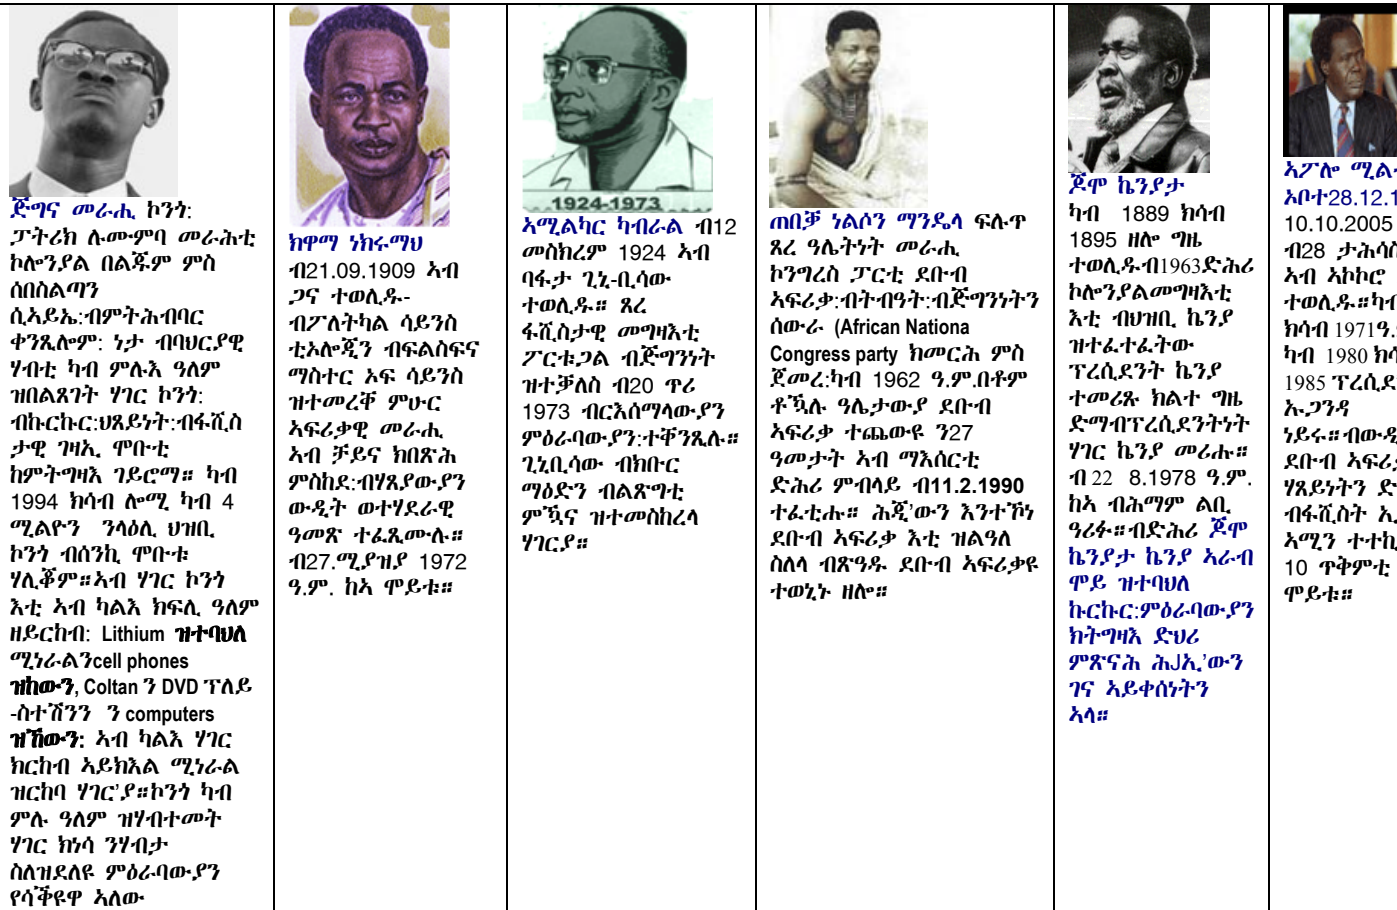 ጅግና መራሒ ኮንጎ:
ፓትሪክ ሉሙምባ መራሕቲ
ኮሎንያል በልጁም ምስ
ሰበስልጣን
ሲኣይኤ:ብምትሕብባር
ቀንጺሎም: ነታ ብባህርያዊ
ሃብቲ ካብ ምሉእ ዓለም
ዝበልጸገት ሃገር ኮንጎ:
ብኩርኩር:ህጸይነት:ብፋሺስ
ታዊ ገዛኢ ሞቡቲ
ከምትግዛእ ገይሮማ። ካብ
1994 ክሳብ ሎሚ ካብ 4
ሚልዮን ንላዕሊ ህዝቢ
ኮንጎ ብሰንኪ ሞቡቱ
ሃሊቆም።ኣብ ሃገር ኮንጎ
እቲ ኣብ ካልእ ክፍሊ ዓለም
ዘይርከብ: Lithium ዝተባህለ
ሚነራልንcell phones
ዝከውን, Coltan ን DVD ፕለይ
-ስተሽንን ን computers
ዝኸውን: ኣብ ካልእ ሃገር
ክርከብ ኣይክእል ሚነራል
ዝርከባ ሃገር'ያ።ኮንጎ ካብ
ምሉ ዓለም ዝሃብተመት
ሃገር ክነሳ ንሃብታ
ስለዝደለዩ ምዕራባውያን
የሳቕዩዋ ኣለው
ክዋማ ነክሩማህ
ብ21.09.1909 ኣብ
ጋና ተወሊዱ-
ብፖለትካል ሳይንስ
ቲኦሎጂን ብፍልስፍና
ማስተር ኦፍ ሳይንስ
ዝተመረቐ ምሁር
ኣፍሪቃዊ መራሒ
ኣብ ቻይና ክበጽሕ
ምስከደ:ብሃጸያውያን
ውዲት ወተሃደራዊ
ዓመጽ ተፈጺሙሉ።
ብ27.ሚያዝያ 1972
ዓ.ም. ከኣ ሞይቱ።
1924-1973
ኣሚልካር ካብራል ብ12
መስከረም 1924 ኣብ
ባፋታ ጊኒ-ቢሳው
ተወሊዱ። ጸረ
ፋሺስታዊ መግዛእቲ
ፖርቱጋል ብጅግንነት
ዝተቓለስ ብ20 ጥሪ
1973 ብርእሰማላውያን
ምዕራባውያን:ተቐንጺሉ።
ጊኒቢሳው ብክቡር
ማዕድን ብልጽግቲ
ምዃና ዝተመስከረላ
ሃገርያ።
ጠበቓ ነልሶን ማንዴላ ፍሉጥ
ጸረ ዓሌትነት መራሒ
ኮንግረስ ፓርቲ ደቡብ
ኣፍሪቃ:ብትብዓት:ብጅግንነትን
ሰውራ (African Nationa
Congress party ክመርሕ ምስ
ጀመረ:ካብ 1962 ዓ.ም.በቶም
ቶኟሉ ዓሌታውያ ደቡብ
ኣፍሪቃ ተጨውዩ ን27
ዓመታት ኣብ ማእሰርቲ
ድሕሪ ምብላይ ብ11.2.1990
ተፈቲሑ። ሕጂ'ውን እንተኾነ
ደቡብ ኣፍሪቃ እቲ ዝልዓለ
ስለላ ብጽዓዱ ደቡብ ኣፍሪቃዩ
ተወኒኑ ዘሎ።
ጆሞ ኬንያታ
ካብ 1889 ክሳብ
1895 ዘሎ ግዜ
ተወሊዱብ1963ድሕሪ
ኮሎንያልመግዛእቲ
እቲ ብህዝቢ ኬንያ
ዝተፈተፈትው
ፕረሲደንት ኬንያ
ተመሪጹ ክልተ ግዜ
ድማብፕረሲደንትነት
ሃገር ኬንያ መሪሑ።
ብ 22 8.1978 ዓ.ም.
ከኣ ብሕማም ልቢ
ዓሪፉ።ብድሕሪ ጆሞ
ኬንያታ ኬንያ ኣራብ
ሞይ ዝተባህለ
ኩርኩር:ምዕራባውያን
ክትግዛእ ድህሪ
ምጽናሕ ሕJኢ'ውን
ገና ኣይቀሰነትን
ኣላ።
ኣፖሎ ሚል
ኣቦተ28.12.1
10.10.2005
ብ28 ታሕሳስ
ኣብ ኣኮኮሮ
ተወሊዱ።ካብ
ክሳብ 1971ዓ.
ካብ 1980 ክሳ
1985 ፕረሲደ
ኡጋንዳ
ነይሩ።ብውዲ
ደቡብ ኣፍሪ
ሃጸይነትን ድ
ብፋሺስት ኢ
ኣሚን ተተኪ
10 ጥቅምቲ
ሞይቱ።